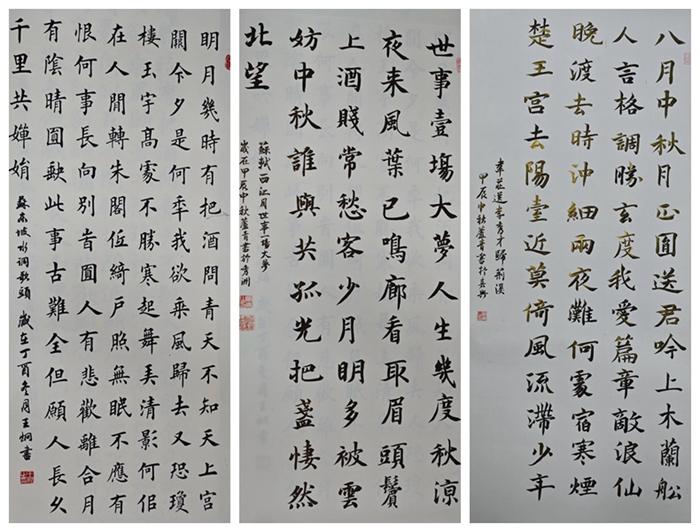 明月幾時有把酒問青天不知天上宮
闕今夕是何年我欲乘風歸去又恐瓊
樓玉宇高處不勝寒起舞弄清影何佀
在人間轉朱閣低綺戶照無眠不應有
恨何事長向別旹圓人有悲歡離合月
有陰晴圓缺此事古難全但願人長久
千里共嬋娟
蘇東坡水調歌頭 歲在丁酉冬月王炯書
世事壹場大夢人生幾度秋涼
夜來風葉已鳴廊看取眉頭鬢
上酒賤常愁客少月明多被雲
妨中秋誰與共孤光把盞悽然
北望
蘇軾西江月世事一場大夢
歲在甲辰中秋蘆青書於秀洲
八月中秋月正圓送君吟上木蘭舩
人言格調勝玄度我愛篇章敵浪仙
晚渡去時沖細雨夜灘何處宿寒煙
楚王宮去陽臺近莫倚風流滯少年
韋莊送李秀才歸荊溪
甲辰中秋蘆青書於嘉興